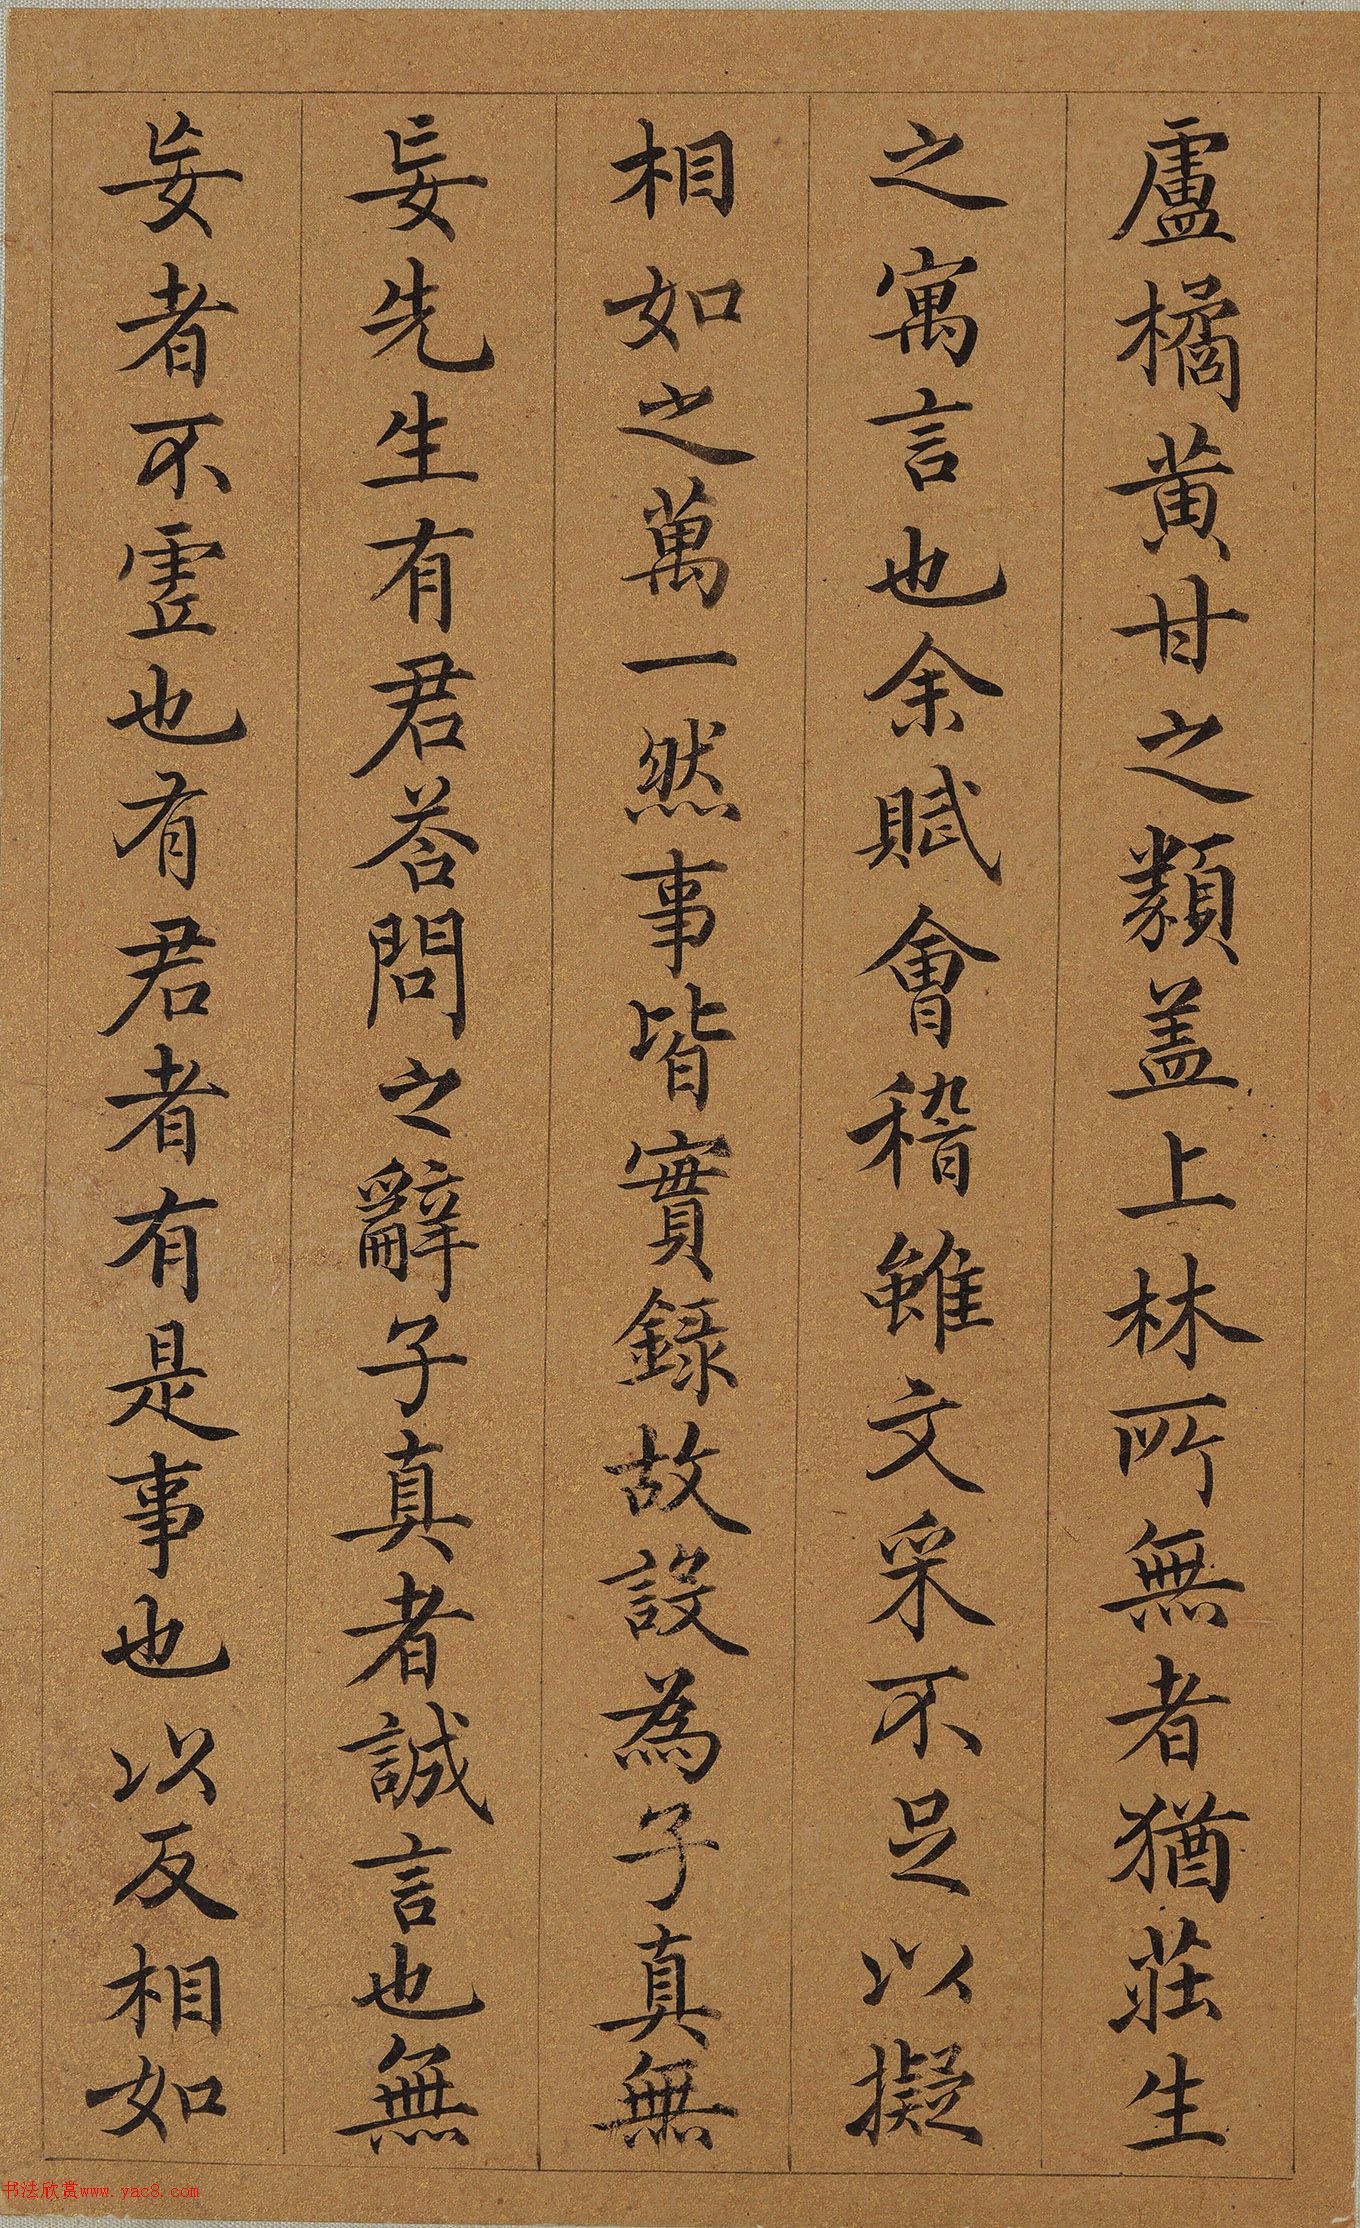 盧橘黄甘之類蓋上林所無者猶莊生
之寓言也余賦會稽雖文采不足以擬
相如之萬一然事皆實錄故設為子真無
妄先生有君荅問之辭子真者誠言也無
妄者不虛也有君者有是事也以反相如
书法欣赏www.yac8.com